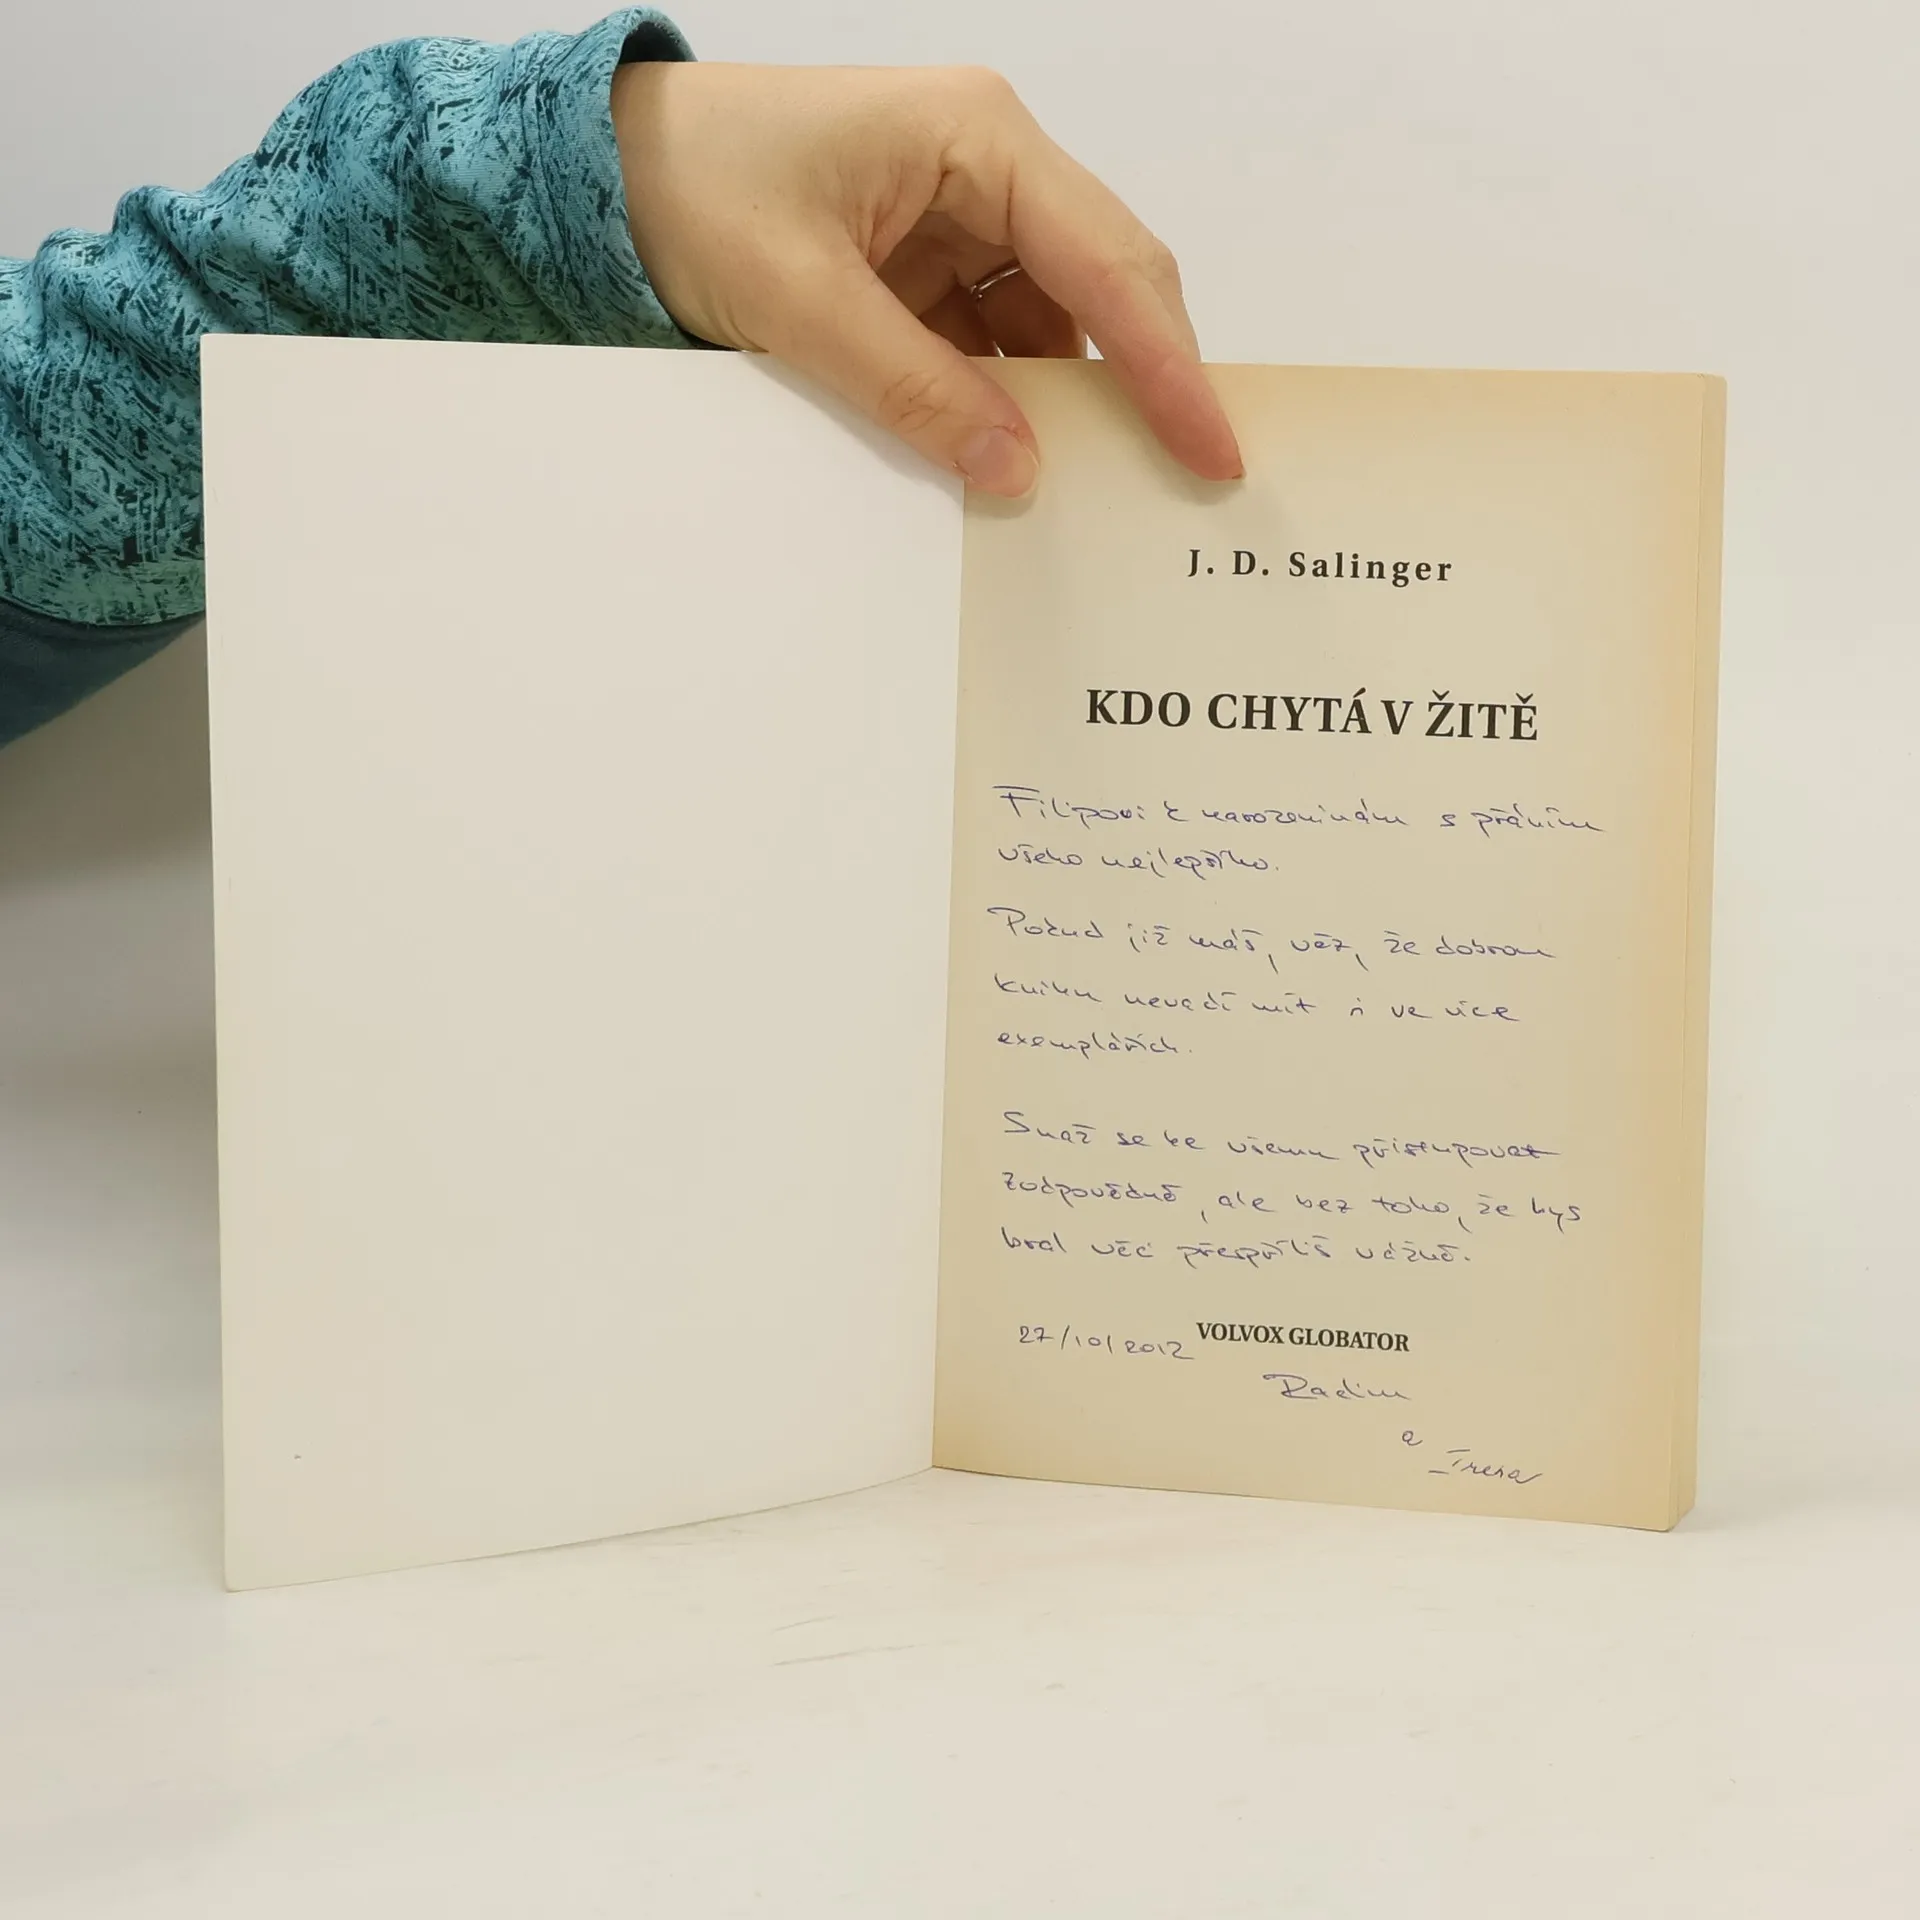 J. D. Salinger
KDO CHYTÁ V ŽITĚ
Filipovi k narozeninám s přáním
všeho nejlepšího.
Pokud již máš, věz, že dobrou
knihu nevadí mít i ve více
exemplářích.
Snaž se ke všemu přistupovat
zodpovědně, ale bez toho, že bys
bral věci přespříliš vážně.
27/10/2012 VOLVOX GLOBATOR
Radim
a
Irena